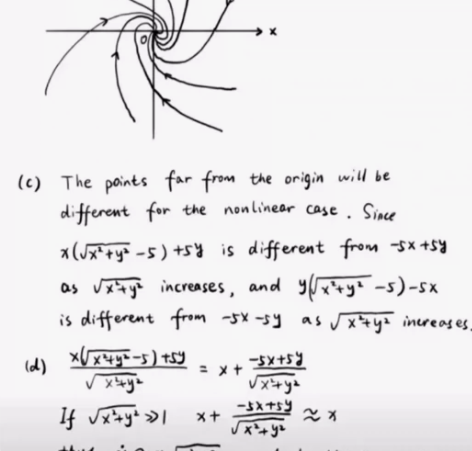 x
0
(c) The points far from the origin will be
different for the nonlinear case. Since
x(√x²+y² -5)+5y is different from -5x+5y
as √x²+y² increases, and y(√x²+y² -5)-5x
is different from -5x-5y as √x²+y² increases.
(d) x(√x²+y²-5)+5y / √x²+y² = x + -5x+5y / √x²+y²
If √x²+y² ≫ 1 x + -5x+5y / √x²+y² ≈ x